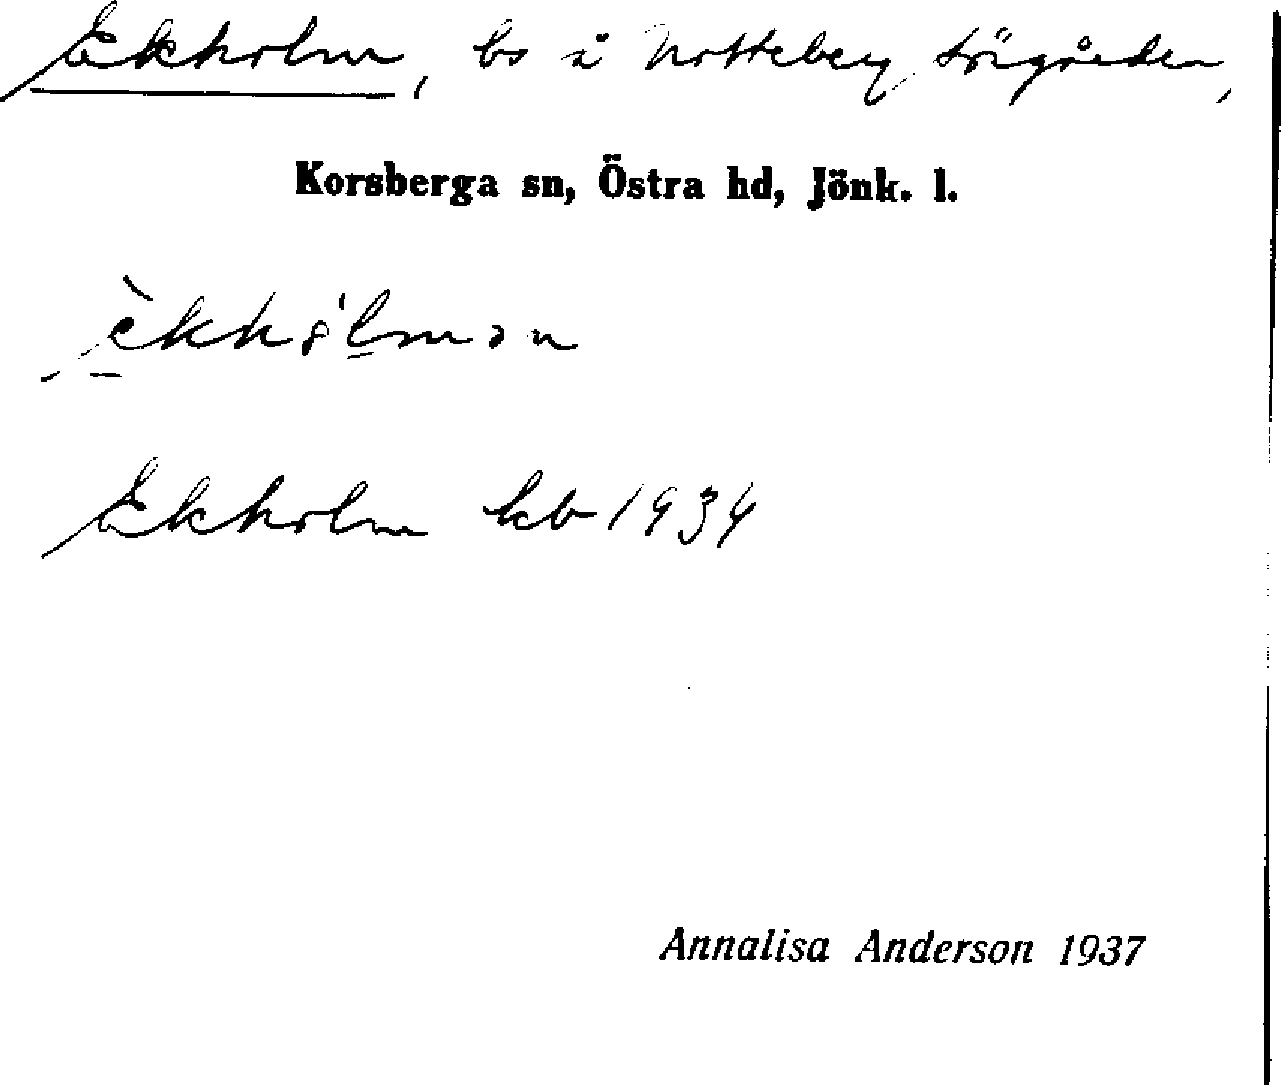 Ekholm, bs i Notteberg Sörgården,
Korsberga sn, Östra hd, Jönk. l.
Ekholm kb 1934
Annalisa Anderson 1937